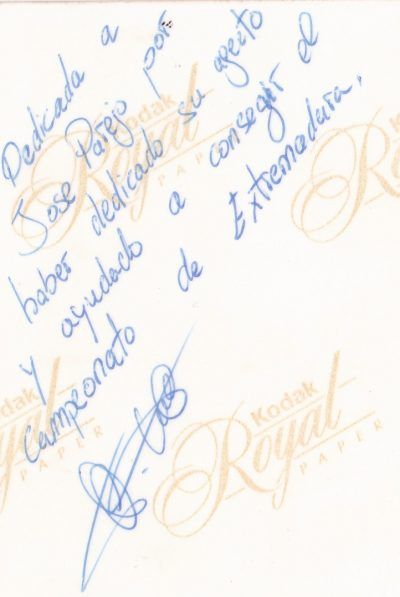 Dedicada a
Jose Parejo por
haber dedicado su agecto
y ayudado a conseguir el
Campeonato de Extremadura.
Kodak
Royal
PAPER
Kodak
Royal
PAPER
Kodak
Royal
PAPER
Kodak
Royal
PAPER